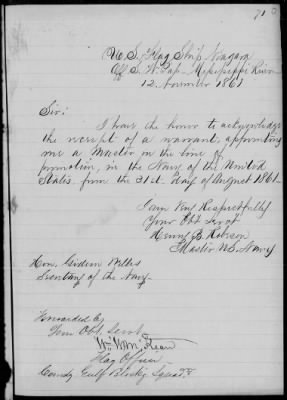 71
U. S. Flag Ship Niagara
Off S. W. Pass Mississippi River
12 November 1861
Sir:
I have the honor to acknowledge
the receipt of a warrant, appointing
me a Master in the line of
promotion, in the Navy of the United
States, from the 31st day of August 1861
I am Very Respectfully
Your Obt Servt
Henry B. Robeson
Master U.S. Navy
Hon. Gideon Welles
Secretary of the Navy
Forwarded by
Your Obt. Servt.
Wm. W. McKean
Flag Officer
Comdg Gulf Blockg Squad.